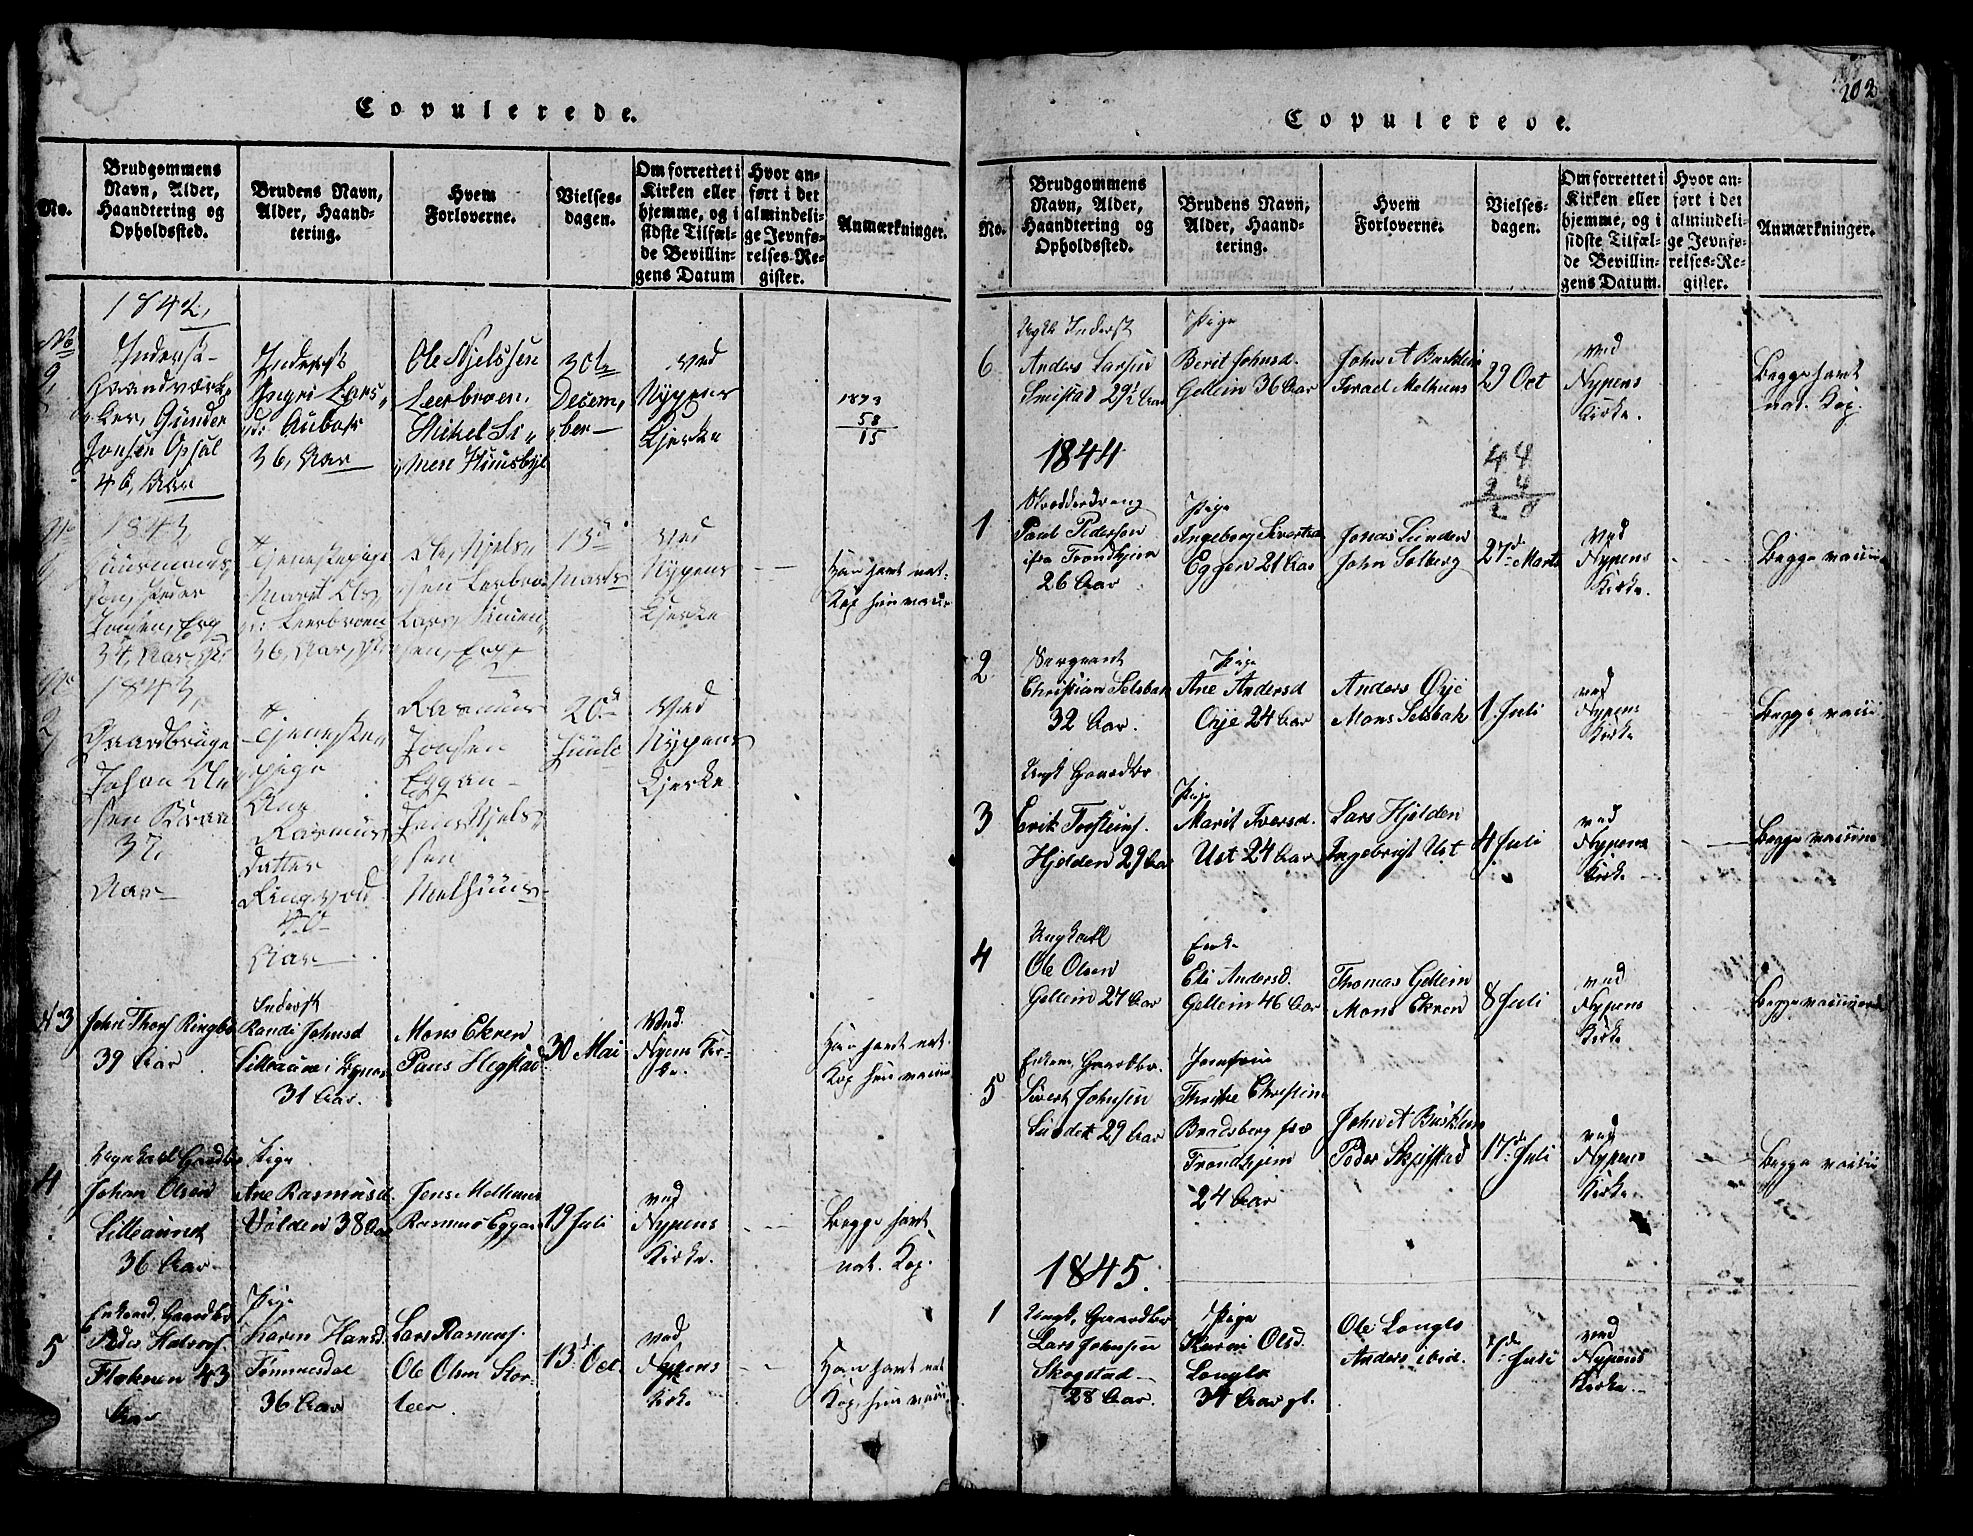 Copulerede.
No.
Brudgommens
Navn, Alder,
Haandtering og
Opholdssted.
Brudens Navn,
Alder, Haand-
tering.
Hvem
Forloverne.
Vielses-
dagen.
Om forrettet i
Kirken eller
hjemme, og i
sidste Tilfæl-
de Bevillin-
gens Datum
Hvor an-
ført i det
almindeli-
ge Jevnfø-
relses-Re-
gister.
Anmærkninger.
1842,
Inderst
Gunder
Jonsen Opsal
46, Aar
Inderst
Ingri Lars
36, Aar
Ole Njelssen
Leerbroen,
Mikel Si
30te
Decem,
ber
ved
Nypens
Kjerke
1843
58
15
1843,
Peder
34, Aar
Tjenestepige
Marit Ols
Leerbroen
36, Aar
Ole, Njels
sen Leerbro
15de
Marts
Ved
Nypens
Kjerke
Han havt nat:
Kop hun vacin
1843,
2
Gaardbruge
Johan Ole
37,
Aar
Tjeneste
pige
Ane
Rasmus
datter
40
Aar
Rasmus
Jonsen
Eggan
Jens Njels
sen
Melhuus
20de
Juule
Ved
Nypens
Kjerke
3
John Thors Ringbo
39 Aar
Inderst
Randi Johnsd
31 Aar.
Mons Ekren
Paus Hegstad
30 Mai
Ved
Nypens Kir-
ke.
Han havt nat.
Kop hun vacin
4
Ungkarl Gaardbr
Johan Olsen
Lilleaunet
36 Aar
Pige
Ane Rasmusd.
Volden 38 Aar
Jens Melhuus
Rasmus Eggan
19 Juli
ved
Nypens
Kirke.
Begge havt
nat. Kop.
5
Enkemd. Gaardbr
Peder Halvors.
Floknen 43
Aar
Pige
Karen Hansd.
Tømmesdal
36 Aar
Lars Rasmus.
Ole Olsen Stor-
leer.
13de Oct.
ved
Nypens
Kirke
Han havt nat
Kop, hun vacin.
202
Copulerede.
No.
Brudgommens
Navn, Alder,
Haandtering og
Opholdssted.
Brudens Navn,
Alder, Haand-
tering.
Hvem
Forloverne.
Vielses-
dagen.
Om forrettet i
Kirken eller
hjemme, og i
sidste Tilfæl-
de Bevillin-
gens Datum.
Hvor an-
ført i det
almindeli-
ge Jevnfø-
relses-Re-
gister.
Anmærkninger.
6
Ugkl Inderst
Anders Larsen
Smistad 29½ Aar
Pige
Berit Johnsd.
Gellein 36 Aar
John A Busklein
Israel Melhuus
29 Oct
ved
Nypens
Kirke.
Begge havt
nat. Kop.
1844
44
24
20
1
Skrædderdreng
Paul Pedersen
ifra Trondhjem
26 Aar
Pige
Ingeborg Sivertsd
Eggen 21 Aar
Jonas Lunden
John Solberg
27de Marts
ved
Nypens
Kirke.
Begge vacine
2
Sergeant
Christian Selsbak
32 Aar.
Pige
Ane Andersd
Øye 24 Aar
Anders Øye
Mons Selsbak
1. Juli
ved
Nypens
Kirke
Begge vacin
3
Ungk Gaardbr
Erik Torsteins.
Hjelden 29 Aar
Pige
Marit Iversd.
Ust 24 Aar
Lars Hjelden
Ingebrigt Ust
4 Juli
ved
Nypens
Kirke
Begge vacine
4
Ungkarl
Ole Olsen
Gellein 27 Aar
Enke
Eli Andersd.
Gellein 46 Aar
Thomas Gellein
Mons Ekren
8 Juli
ved
Nypens
Kirke
Begge vacinerede
5
Enkem. Gaardbr.
Sivert Johnsen
Sundet 29 Aar
Jomfrue
Christine
Bradsberg fra
Trondhjem
24 Aar
John A Busklein
Peder Skjefstad
17de Juli
ved
Nypens
Kirke.
Begge vacin
1845.
1
Ungk, Gaardbr
Lars Johnsen
Skogstad
28 Aar.
Pige
Karen Olsd.
Longlo
34 Aar gl.
Ole Longlo
Anders ibid.
7de Juli
ved
Nypens
Kirke.